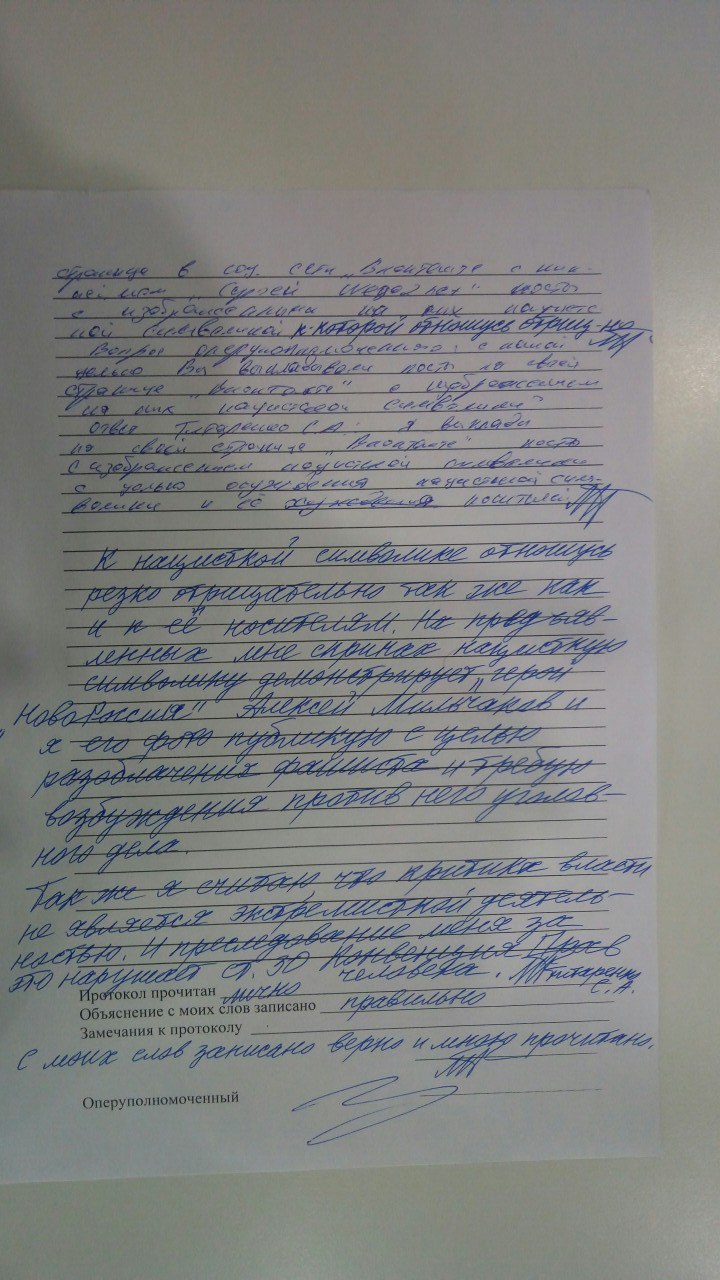 страница в соц. сети „Вконтакте с ник-
неймом „Сергей
с изображениями на них нацистс
кой символикой к которой отношусь отриц-но
Вопрос оперуполномоченного: с какой
целью Вы выкладывали посты на своей
странице „Вконтакте" с изображением
на них нацистской символики?
Ответ Титаренко С.А.: я выкладывал
на своей странице „Вконтакте" посты
с изображением нацисткой символики
с целью осуждения нацисткой сим-
волики и её носителей
К нацисткой символике отношусь
резко отрицательно так же как
и к её носителям. На предъяв-
ленных мне скринах нацисткую
символику демонстрирует „герой
„Новороссия" Алексей Мильчаков и
я его фото публикую с целью
разоблачения фашиста и требую
возбуждения против него уголов-
ного дела.
Так же я считаю что критика власти
не является экстремисткой деятель-
ностью. И преследование меня за
это нарушает ст. 30 Конвенция Прав
человека. Титаренко С.А.
Протокол прочитан лично
Объяснение с моих слов записано правильно
Замечания к протоколу
С моих слов записано верно и мною прочитано.
Оперуполномоченный